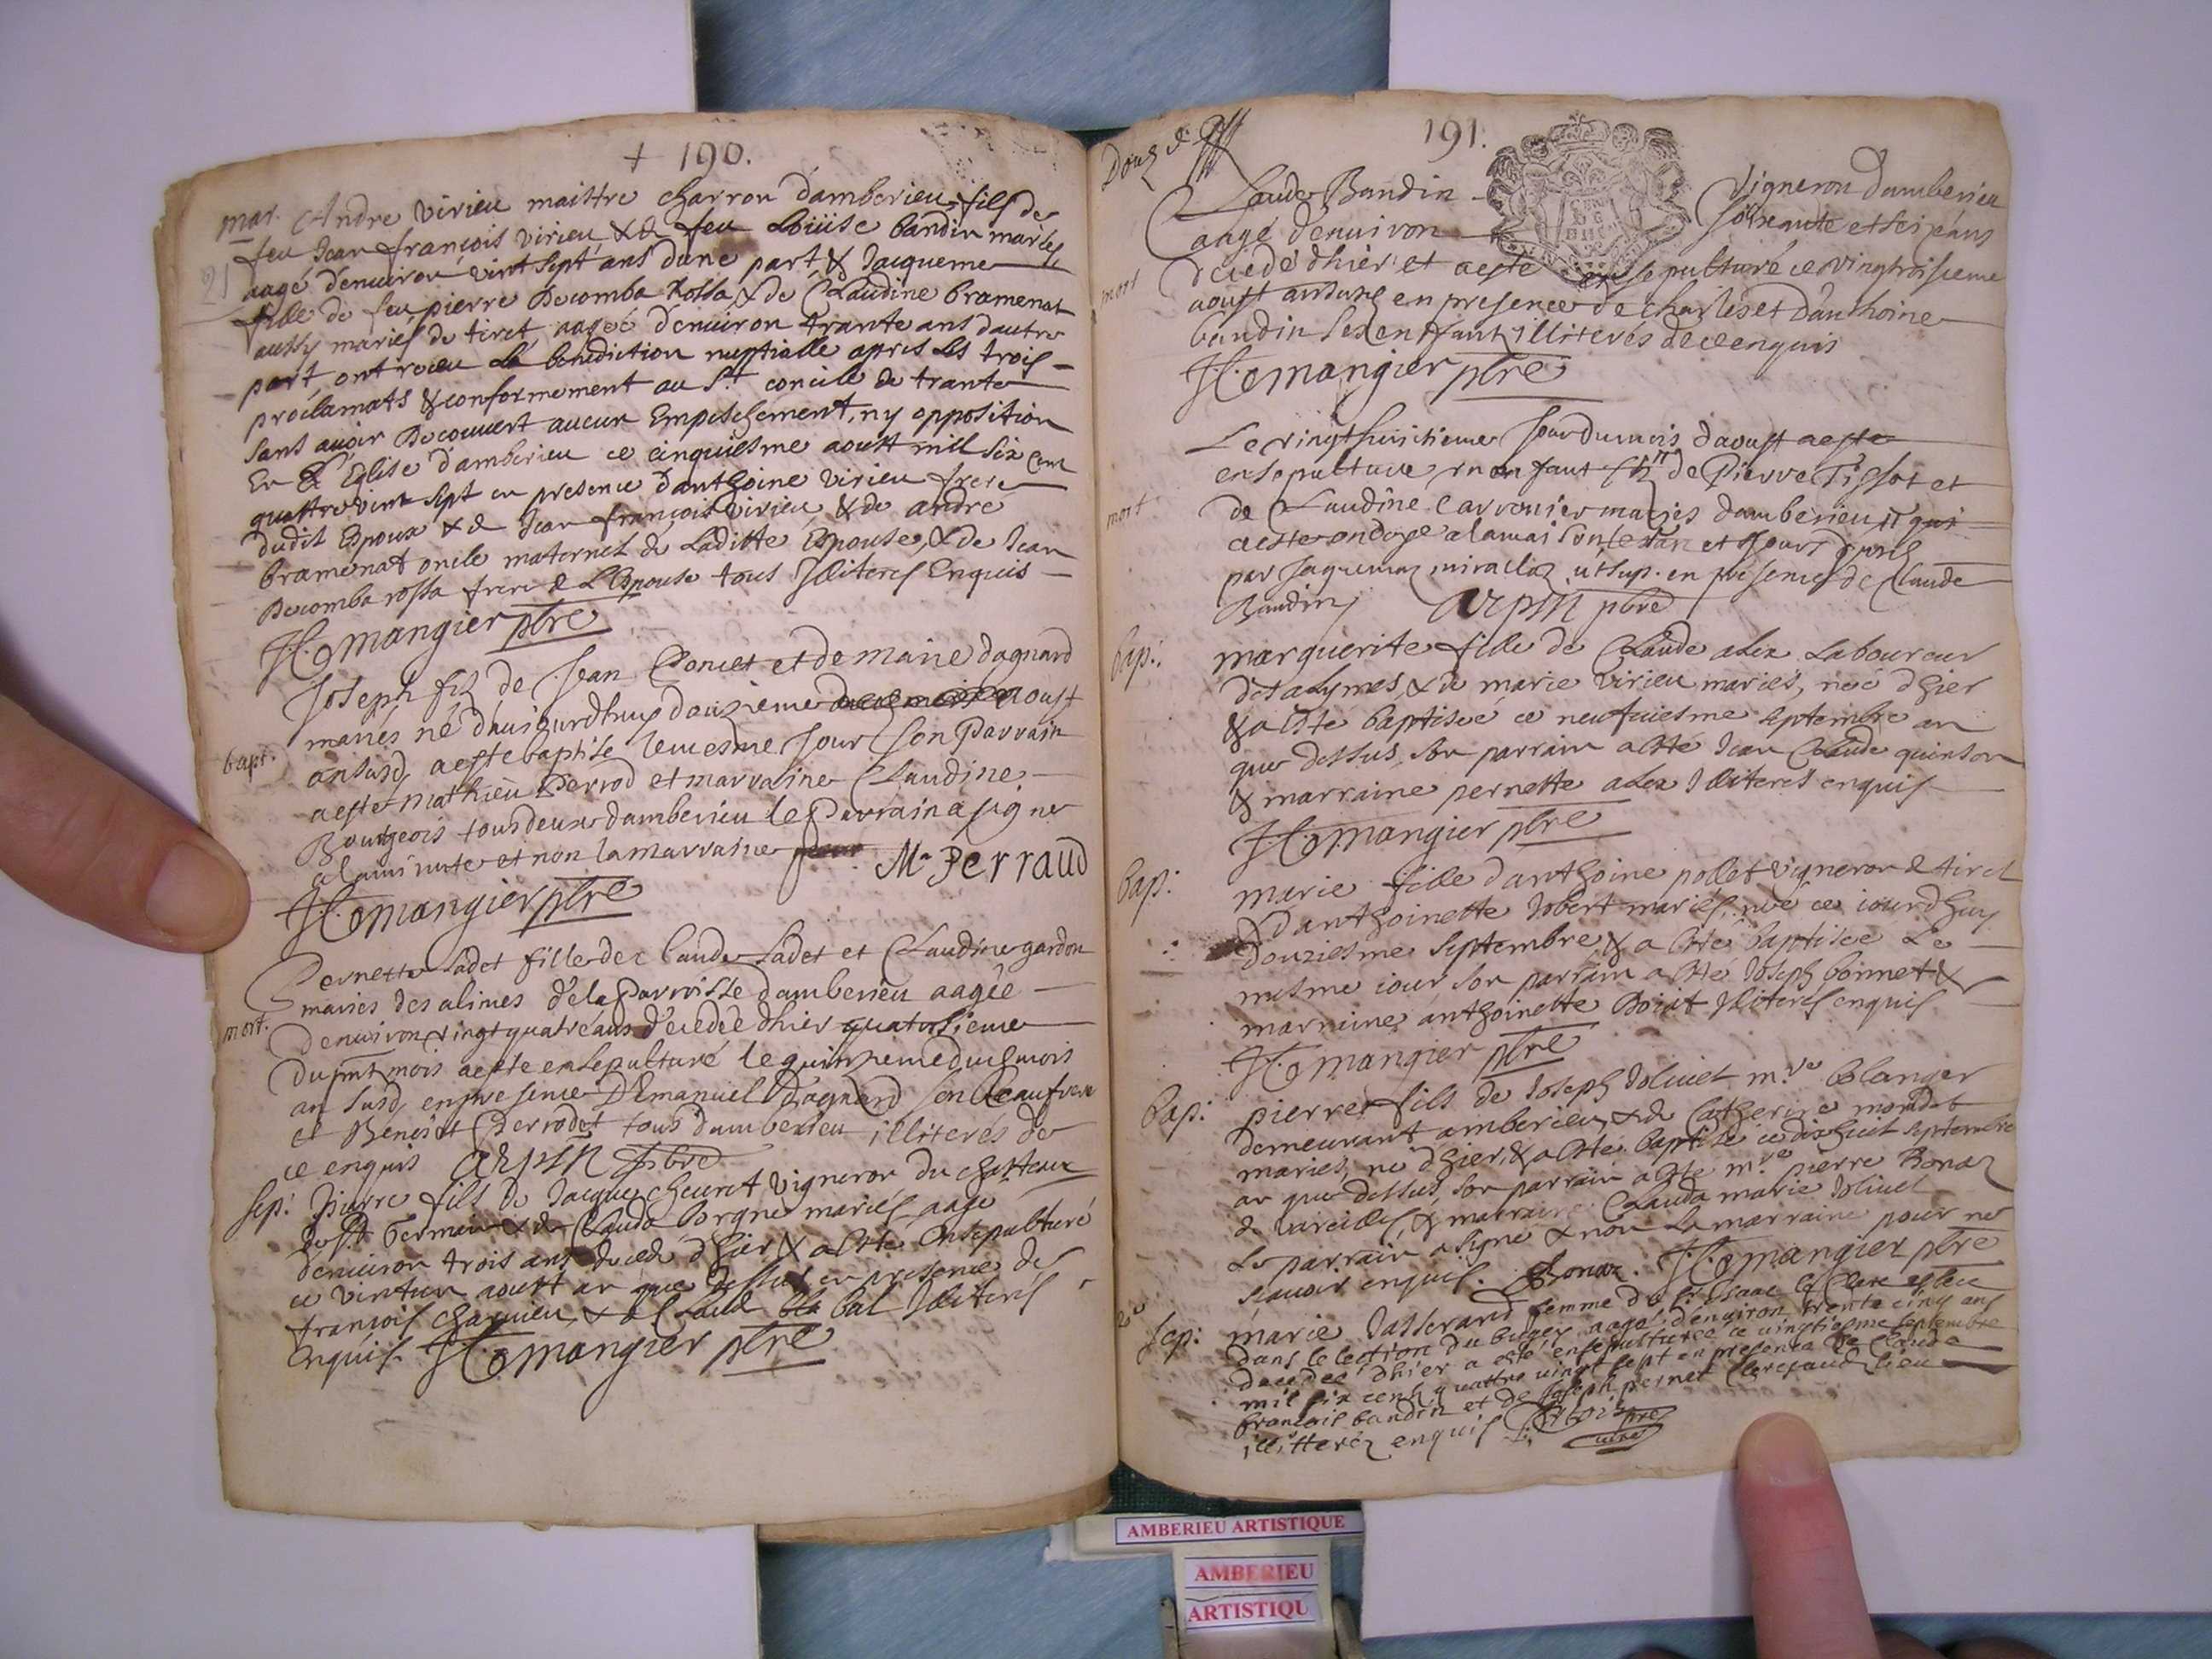 + 190.
mar. Andre virieu maistre charron d'amberieu, fils de
feu Jean françois virieu & de feu Loüise bandin mariés
21
aagé d'enuiron vint sept ans d'une part & Jacqueme
fille de feu pierre Decomba rossa & de Claudine bramenat
aussy mariés de tiret aageé d'enuiron trante ans dautre
part, ont receu La benediction nuptialle apres Les trois
proclamats & conformement au St. concile de trante
sans auoir Decouvert aucun Empeschement, ny opposition
En Eglise d'amberieu ce cinquiesme aoust mill six cent
quattre vint sept en presence d'anthoine virieu frere
dudit Espoux & de Jean françois virieu, & de andré
bramenat oncle maternel de Laditte Espouse, & de Jean
Decomba rossa frere de L'Espouse tous Illiterés Enquis
mangier pbre
Joseph fils de Jean et de Marie dagnard
mariés né d'aujourdhuy douzieme aoust
bapt. an susd. a este baptise le mesme Jour son Parrain
a este Mathieu Perrod et marraine Claudine
Bourgeois tous deux d'amberieu le Parrain a signe
a la minute et non la marraine Mr Perraud
mangier pbre
Pernette Ladet fille de Claude Ladet et Claudine gardon
maries des alimes de la Parroisse d'amberieu aagée
mort. d'enuiron vingt quatre ans decedée dhier quatorsieme
du pnt mois a este ensepulturé le quinzieme dud mois
an susd. en presence D'Emanuel Dagnard son beaufrere
et Benoist Perrodet tous d'amberieu illiterés de
ce enquis arpin pbre
sep: Pierre fils de Jacque cheuret vigneron du chasteau
de St. Germain & de Clauda borgne mariés aagé
d'enuiron trois ans decedé d'hier & a esté Ensepulturé
ce vintun aoust an que dessus en presence de
françois charuieu & de Claude bal Illiterés
enquis. mangier pbre
191.
Claude Bandin Vigneron d'amberieu
aagé d'enuiron soixante et seize ans
mort decedé dhier et a este ensepulturé ce vingtroisieme
aoust an susd en presence de Charles et d'anthoine
bandin ses enfants illiterés de ce enquis
mangier pbre
Le vingt huictieme Jour du mois d'aoust a este
ensepulturé un enfant de Pierre Tissot et
mort de Claudine Carronier mariés d'amberieu qui
a este ondoye a la maison
par Jaquemaz miraillaz ut sup. en presence de Claude
Bandin arpin pbre
bap: marguerite fille de Claude alex Laboureur
des alymes, & de marie virieu mariés, neé d'hier
& a esté baptiseé ce neufuiesme septembre an
que dessus, son parrain a esté Jean Claude quinson
& marraine pernette alex Illiterés enquis
mangier pbre
bap: marie fille d'anthoine pollet vigneron de tiret
& d'anthoinette Jobert mariés, neé ce iourd'huy
douziesme septembre, & a esté baptisee Le
mesme iour son parrain a esté Joseph bonnet &
marraine anthoinette Illiterés enquis
mangier pbre
bap: pierre fils de Joseph Joliuet m.re bolanger
demeurant amberieu, & de Catherine
mariés, né d'hier, & a esté baptisé ce dixhuit septembre
an que dessus, son parrain a esté m.re pierre Bonaz
de & marraine Clauda marie Joliuet
Le parrain a signé & non La marraine pour ne
scauoir enquis. Bonaz. mangier pbre
sep: marie Jasserand femme du Sr Isaac le Clerc esleu
dans le lection du bugey aagé d'enuiron trente cinq ans
decedeé dhier a este ensepulturee ce uingtiesme septembre
mil six cents quattre uingt sept en presence de Claude
françois bandin et de Joseph pernet
illitterez enquis pbre
AMBERIEU ARTISTIQUE
AMBERIEU
ARTISTIQU